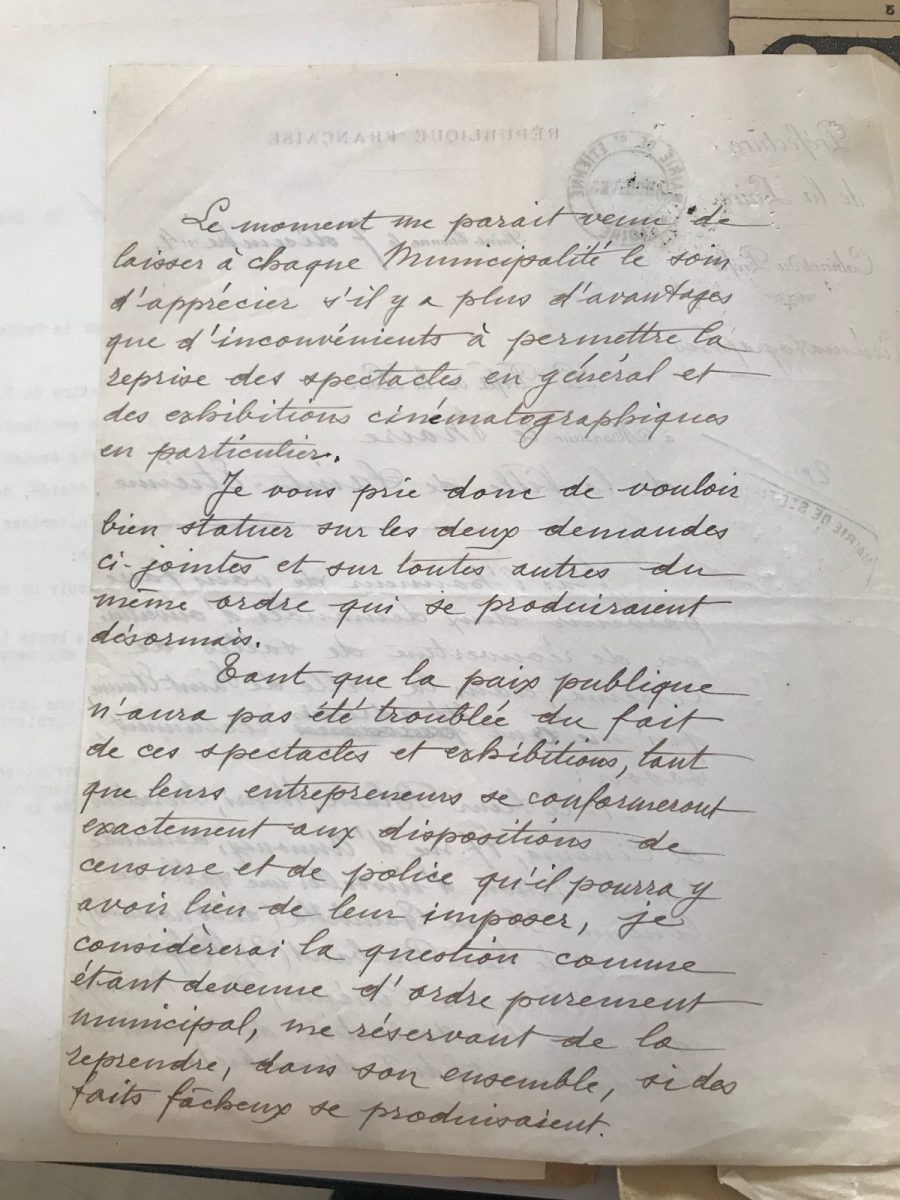 Le moment me parait venu de
laisser à chaque Municipalité le soin
d'apprécier s'il y a plus d'avantages
que d'inconvénients à permettre la
reprise des spectacles en général et
des exhibitions cinématographiques
en particulier.
Je vous prie donc de vouloir
bien statuer sur les deux demandes
ci-jointes et sur toutes autres du
même ordre qui se produiraient
désormais.
Tant que la paix publique
n'aura pas été troublée du fait
de ces spectacles et exhibitions, tant
que leurs entrepreneurs se conformeront
exactement aux dispositions de
censure et de police qu'il pourra y
avoir lieu de leur imposer, je
considèrerai la question comme
étant devenue d'ordre purement
municipal, me réservant de la
reprendre, dans son ensemble, si des
faits fâcheux se produisaient.
RÉPUBLIQUE FRANÇAISE
MAIRIE DE ST ETIENNE
Préfecture
de la Loire